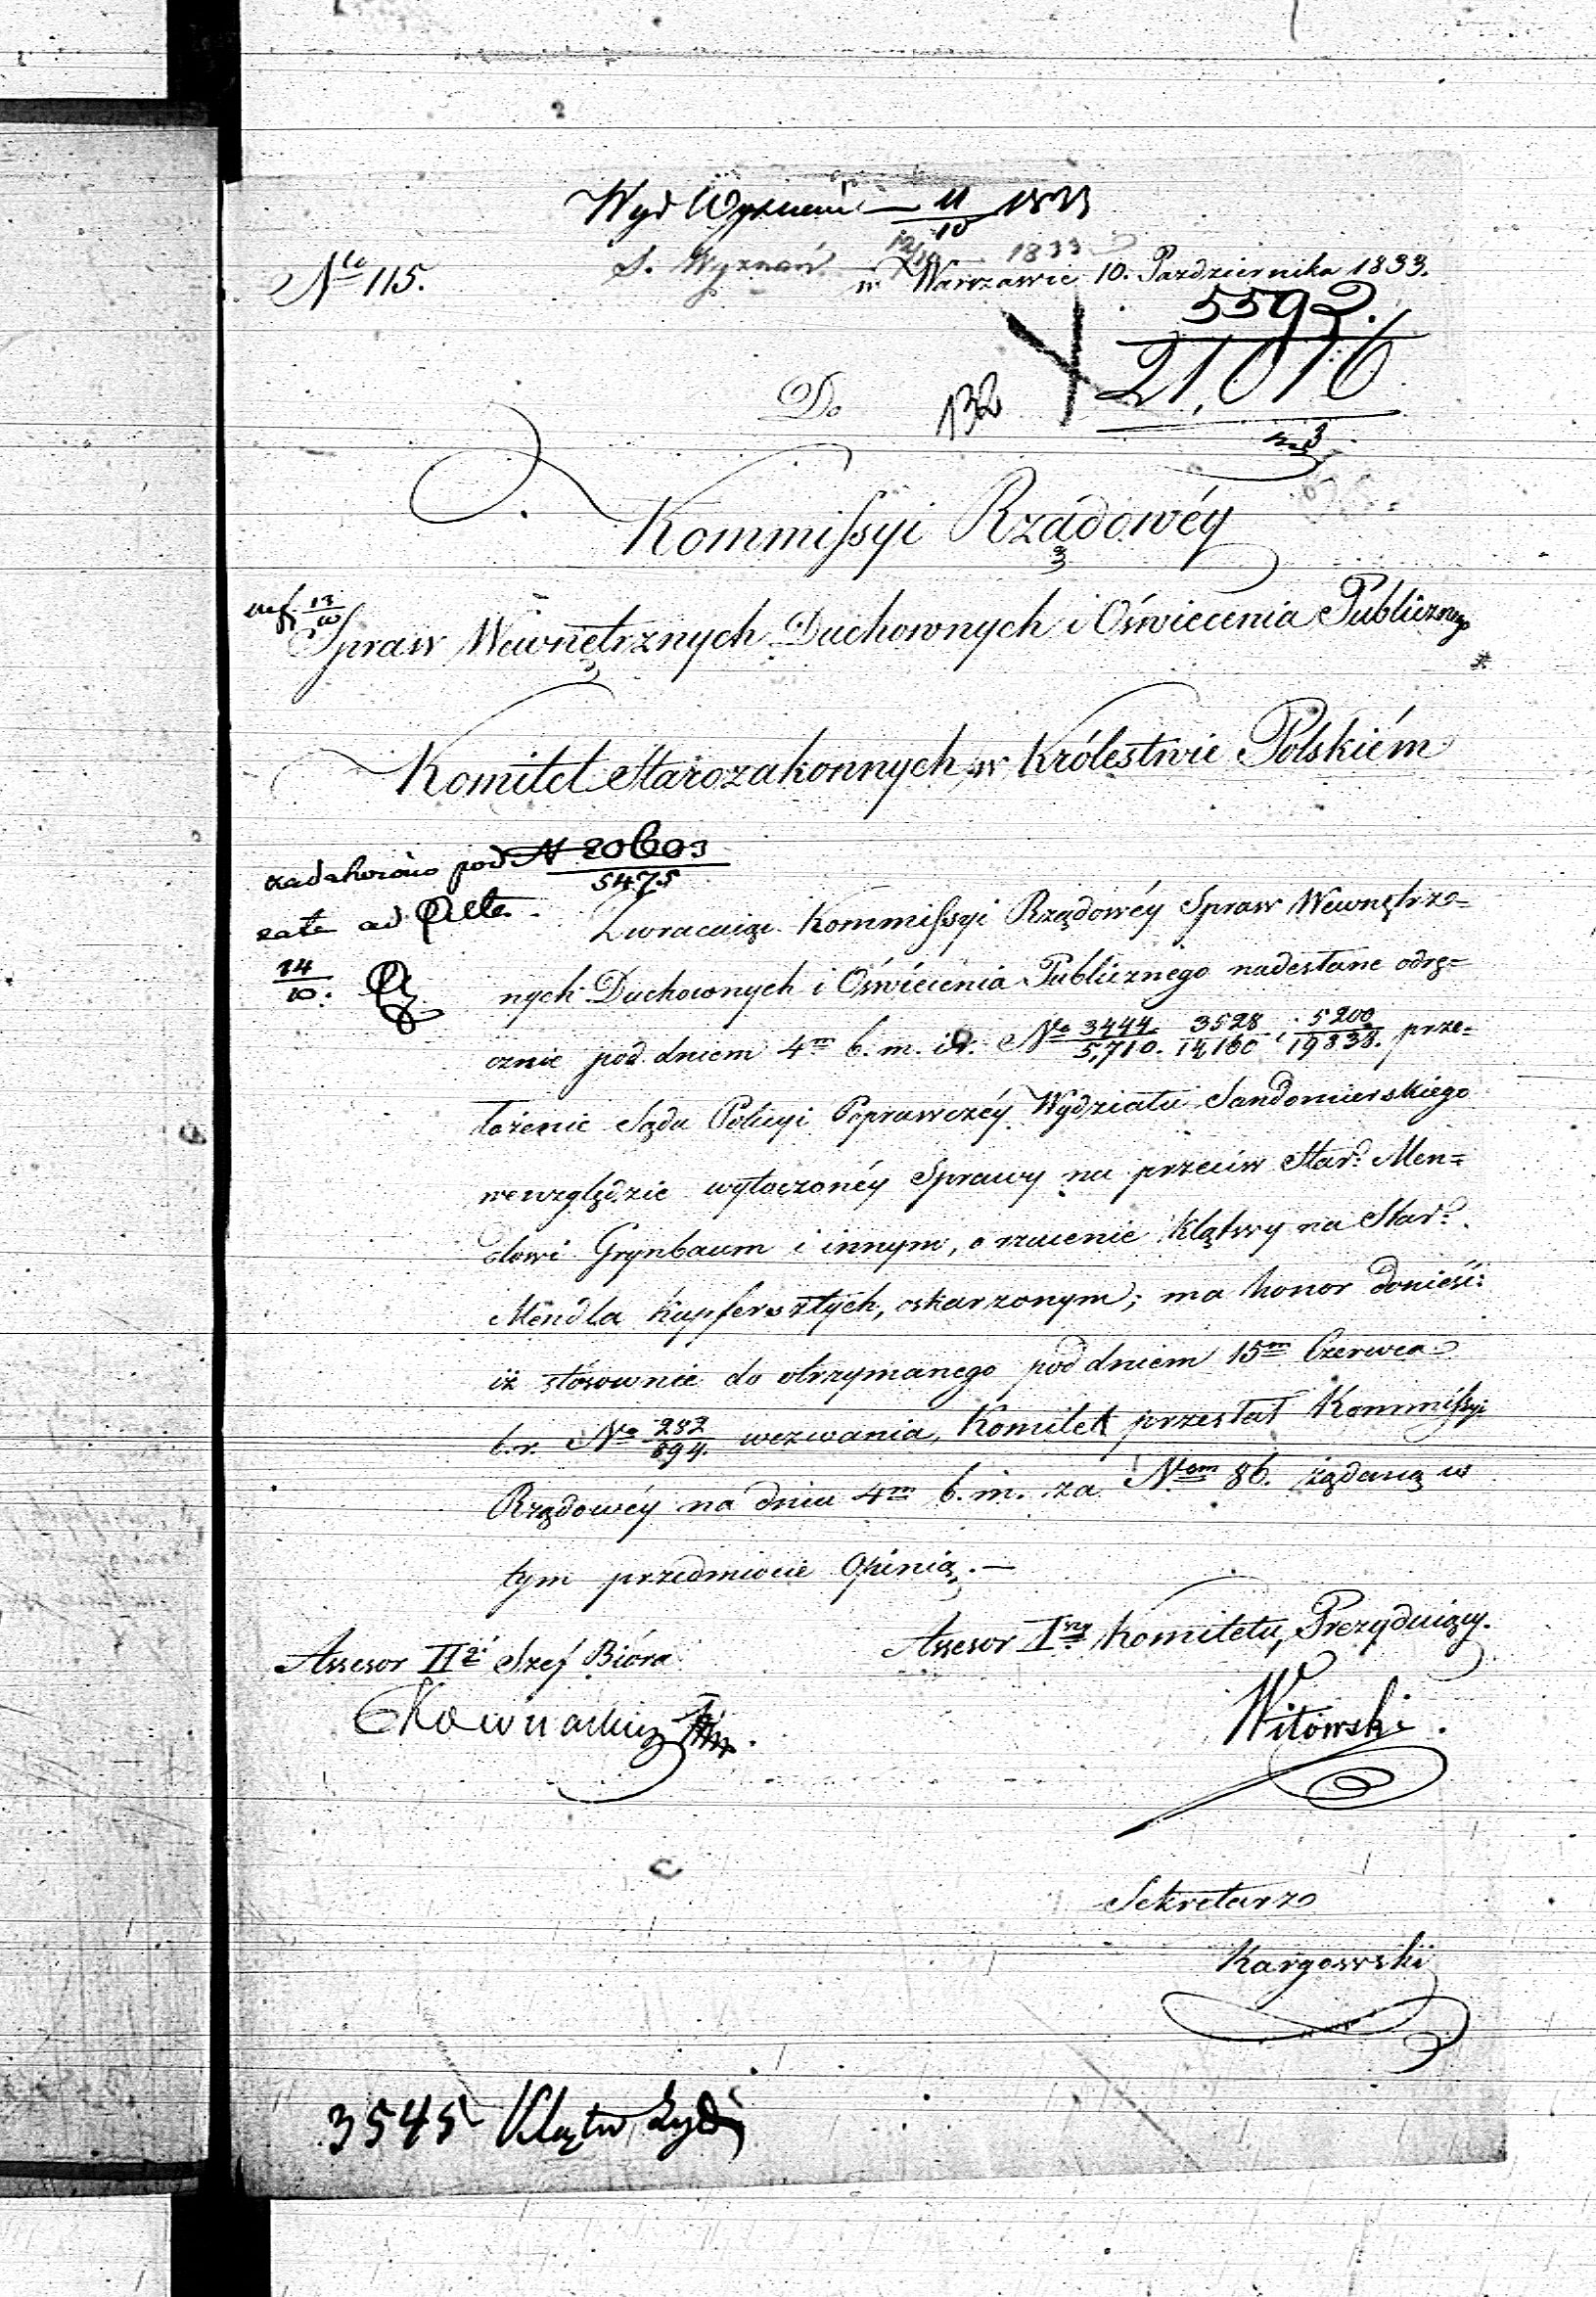 Wyd Wyznań — 11/10 1833
S. Wyznań 12/10 1833
N<sup>to</sup> 115.
w Warszawie 10. Pazdziernika 1833.
5592.
21,016
Do
132
Kommissyi Rządowéy
13/10
Spraw Wewnętrznych Duchownych i Oświecenia Publicznego
Komitet Starozakonnych w Królestwie Polskiém
pod N 20603/5475
14/10.
Zwracaiąc Kommissyi Rządowéy Spraw Wewnętrz=
nych Duchownych i Oświecenia Publicznego nadesłane odrę=
cznie pod dniem 4<sup>m</sup> b. m. i r. N<sup>o</sup> 3444/5,710. 3528/14,160 i 5200/19838. prze=
łożenie Sądu Policyi Poprawczéy Wydziału Sandomierskiego
we względzie wytoczonéy Sprawy na przeciw Star: Men=
dlowi Grynbaum i innym, o rzucenie klątwy na Star:
Mendla Kupfersztych, oskarzonym; ma honor donieść:
iż stósownie do otrzymanego pod dniem 15<sup>m</sup> Czerwca
b. r. N<sup>o</sup> 282/894. wezwania, Komitet przesłał Kommissyi
Rządowéy na dniu 4<sup>m</sup> b. m. za N<sup>em</sup> 86. żądaną w
tym przedmiocie Opinią. —
Assesor I<sup>szy</sup> Komitetu, Prezyduiący.
Assesor II<sup>gi</sup> Szef Bióra
Witowski.
Sekretarz
Kargowski
3545 Klątw Żyd